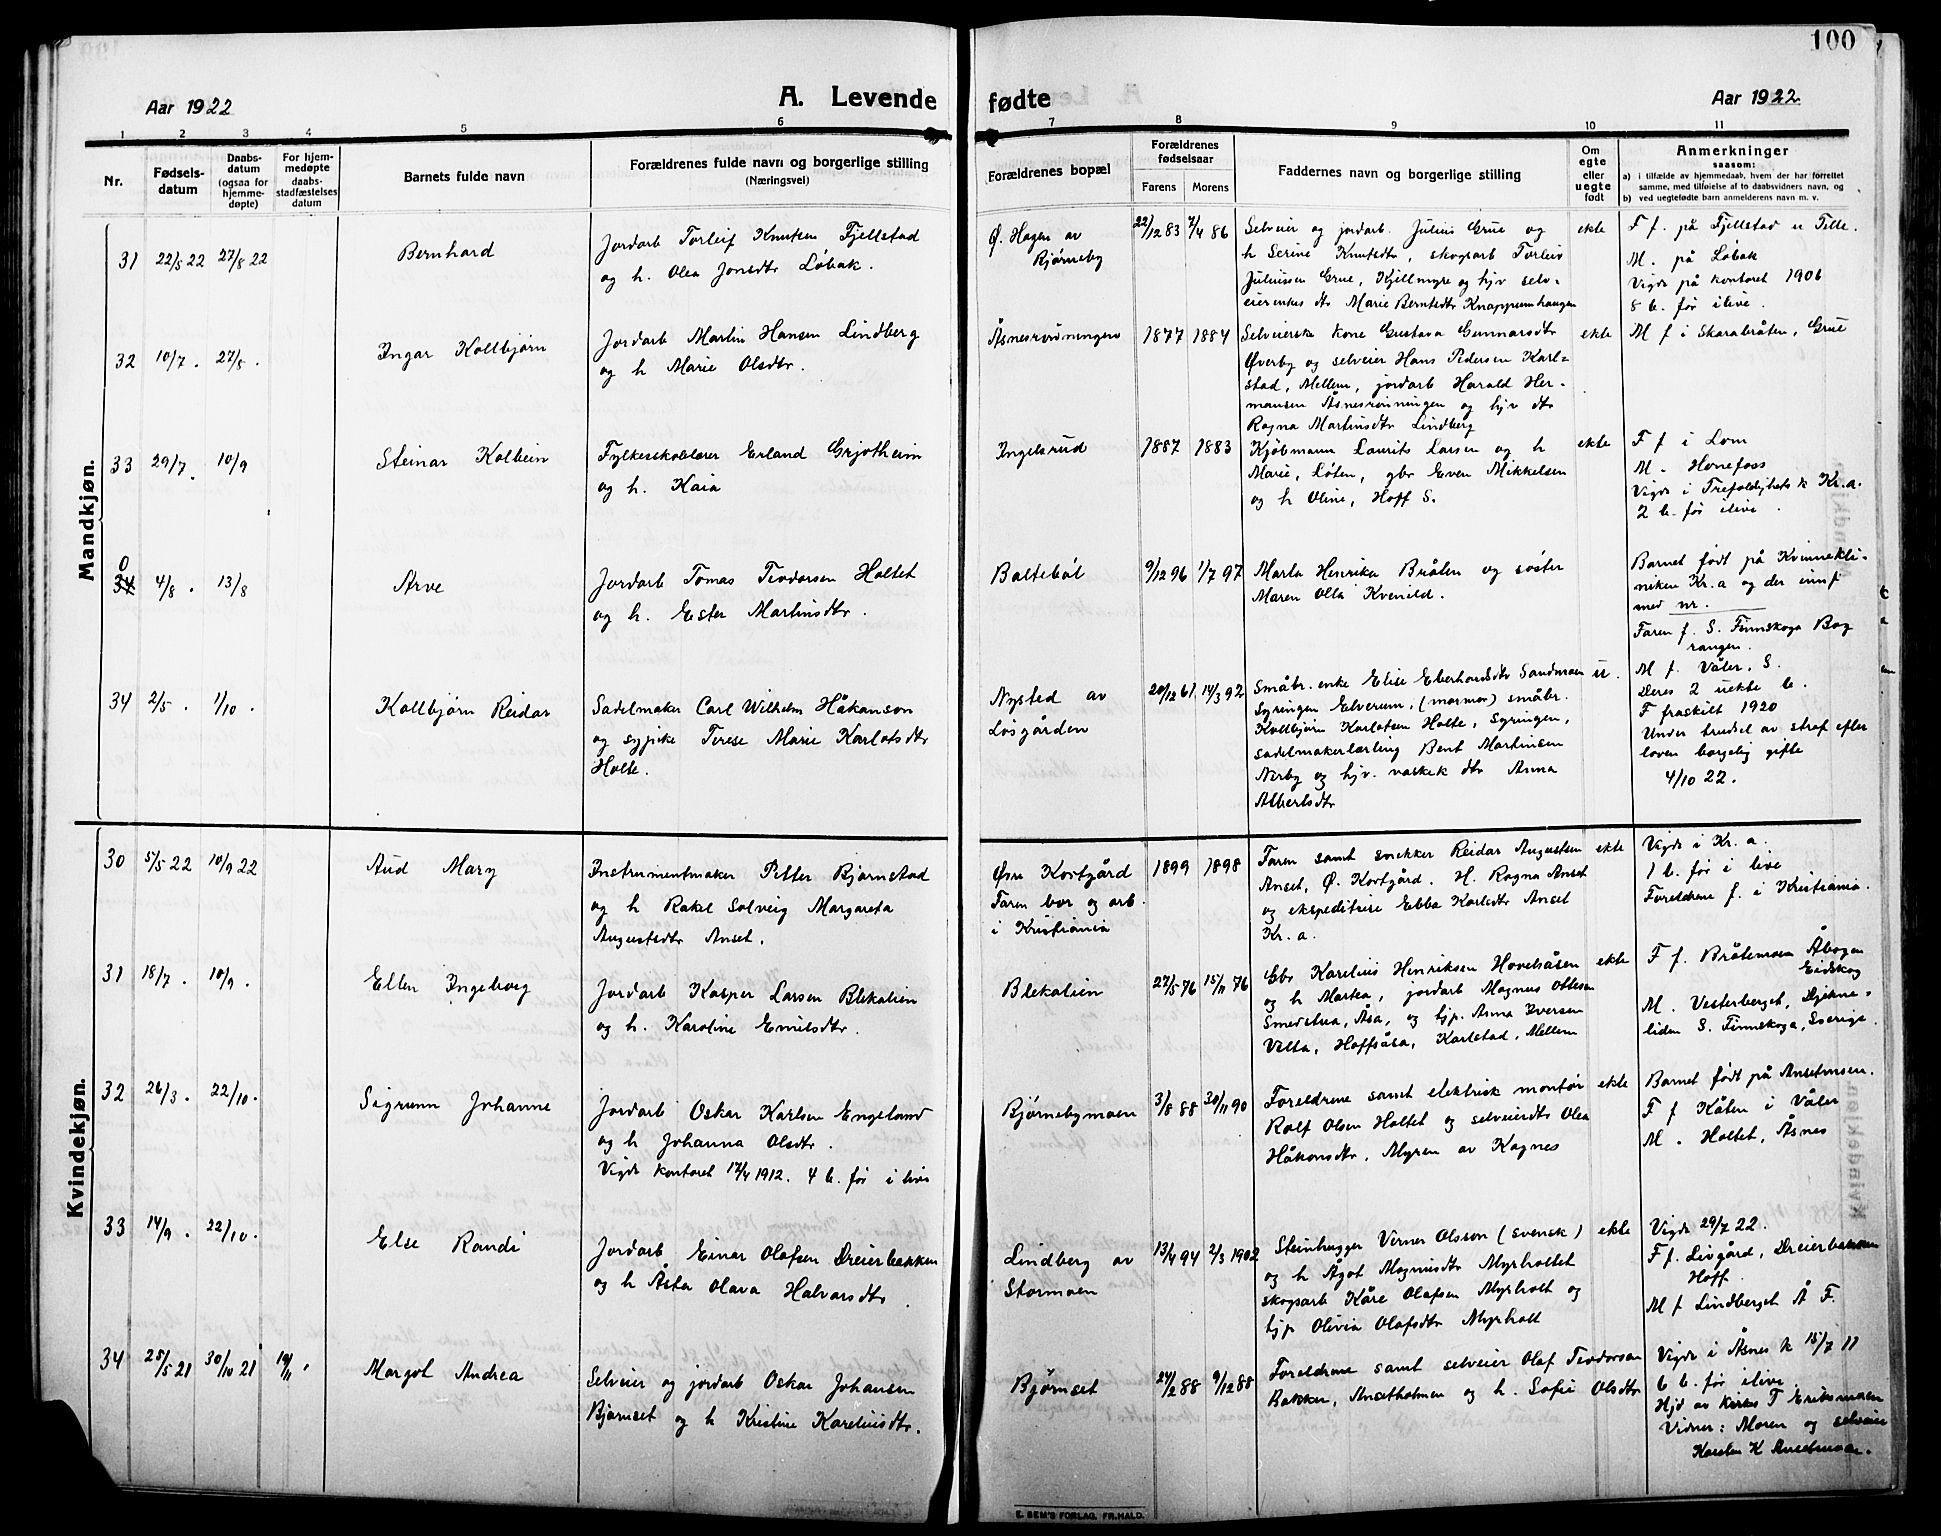 100
Aar 1922
A. Levende
fødte
Aar 1922
1 2 3 4 5 6 7 8 9 10 11
Nr.
Fødsels-
datum
Daabs-
datum
(ogsaa for
hjemme-
døpte)
For hjem-
medøpte
daabs-
stadfæstelses
datum
Barnets fulde navn
Forældrenes fulde navn og borgerlige stilling
(Næringsvei)
Forældrenes bopæl
Forældrenes
fødselsaar
Farens. Morens.
Faddernes navn og borgerlige stilling
Om
egte
eller
uegte
født
Anmerkninger
saasom:
a) i tilfælde av hjemmedaab, hvem der har forrettet
samme, med tilføielse af to daabsvidners navn, og
b) ved uegtefødte barn anmelderens navn m. v.
Mandkjøn.
31 22/5 22 27/8 22
Bernhard
Jordarb Torleif Knutsen Fjellstad
og h. Olea Jonsdtr Løbak.
Ø. Hagen av
Bjørneby
22/12 83 7/4 86
Selveier og jordarb. Julius Grue og
h Serine Knutsdtr, skogsarb Torleiv
Juliussen Grue, Kjellmyre og hjv selv-
eierenkes dtr Marie Berntsdtr Knappumhaugen
ekte
F f. på Fjellstad
M. på Løbak
Vigde på kontoret 1906
8 b. før ilive.
32 10/7. 27/8.
Ingar Kolbjørn
Jordarb Martin Hansen Lindberg
og h Marie Olsdtr.
Åsnesrønningen
1877 1884
Selveierske kone Gustava Gunnarsdtr
Øverby og selveier Hans Pedersen Karl-
stad, Mellem, jordarb Harald Her-
mansen Åsnesrønningen og hjv dtr
Ragna Martinsdtr Lindberg
ekte
M f i Skarabråten, Grue
33 29/7. 10/9
Steinar Kolbein
Fylkesskolelærer Erland Grjotheim
og h. Kaia
Ingelsrud
1887 1883
Kjøbmann Laurits Larsen og h
Marie, Løten, gbr Even Mikkelsen
og h Oline, Hoff S.
ekte
F f i Lom
M. Hønefoss
Vigde i Trefoldighets k Kr.a.
2 b. før ilive.
0
34 4/8. 13/8
Arve
Jordarb Tomas Teodorsen Holtet
og h. Ester Martinsdtr.
Baltebøl
9/12 96 1/7 97
Marta Henrika Bråten og søster
Maren Olla Kvenild.
Barnet født på Kvinnekli-
niken Kr.a og der innf
med nr.
Faren f. S. Finnskoga Bog
rangen.
M f. Våler, S.
34 2/5. 1/10.
Kolbjørn Reidar
Sadelmaker Carl Wilhelm Håkanson
og sypike Terese Marie Karlotsdtr
Holte.
Nysted av
Løsgården
20/12 61 14/3 92
Småbr. enke Elise Eberhardsdtr Sandmoen
Syringen Elverum, (mormor) småbr.
Kolbjørn Karlotsen Holte, Syringen,
sadelmakerlærling Bent Martinsen
Nerby og hjv. vaskek dtr Anna
Albertsdtr
u.
Deres 2 uekte b.
F fraskilt 1920
Under trudsel av straf efter
loven borgelig gifte
4/10 22.
Kvindekjøn.
30 5/5 22 10/9 22
Aud Mary
Instrumentmaker Petter Bjørnstad
og h Rakel Solveig Margareta
Augustsdtr Anset.
Øvre Kortgård
Faren bor og arb.
i Kristiania
1899 1898
Faren samt snekker Reidar Augustsen
Anset, Ø. Kortgård. H. Ragna Anset
og ekspeditrise Ebba Karlsdtr Anset
Kr. a.
ekte
Vigde i Kr. a.
1 b. før i live
Foreldrene f. i Kristiania.
31 18/7. 10/9.
Ellen Ingeborg
Jordarb Kasper Larsen Blekalien
og h. Karoline Emilsdtr.
Blekalien
27/5 76 15/11 76
Gbr Karelius Henriksen Hovelsåsen
og h Martea, jordarb Magnus Ottesen
Smedstua, Åsa, og hjp. Anna Iversen
Velta, Hoffsåsa, Karlstad, Mellem
ekte
F f. Bråtemoen Åbogen
Eidskog
M. Vesterberget, Djekne-
liden S. Finnskoga, Sverige.
32 26/3. 22/10.
Sigrunn Johanne
Jordarb Oskar Karlsen Engeland
og h Johanna Olsdtr.
Vigde kontoret 17/4 1912. 4 b. før i live
Bjørnebymoen
3/8 88 30/11 90
Foreldrene samt elektrisk montør
Rolf Olsen Holtet og selveierdtr Olea
Håkonsdtr, Myren av Kognes
ekte
Barnet født på Ansetmoen.
F f Kåten i Våler
M. Holtet, Åsnes
33 14/9. 22/10.
Else Randi
Jordarb Einar Olafsen Dreierbakken
og h Åsta Olava Halvarsdtr.
Lindberg av
Stormoen
13/4 94 2/3 1902
Steinhugger Verner Olsson (svensk)
og h Ågot Magnusdtr Myrholtet
skogsarb Kåre Olafsen Myrholt og
hjp Olivia Olafsdtr Myrholt
ekte
Vigde 29/7 22.
F f. Livgård, Dreierbakken
Hoff.
M f Lindberget Å F.
34 25/5 21 30/10 21 19/11.
Margot Andrea
Selveier og jordarb Oskar Johansen
Bjørnset og h Kristine Kareliusdtr.
Bjørnset
24/2 88 9/12 88
Foreldrene samt selveier Olaf Teodorsen
Bakken, Ansetholmen og h. Sofie Olsdtr
Vigde i Åsnes k 15/7 11
6 b. før ilive.
Hjd av kirkes T Eriksmoen
Vidner: Moren og selveier
Karsten K Ansetmoen.
E. SEM'S FORLAG, FR.HALD.